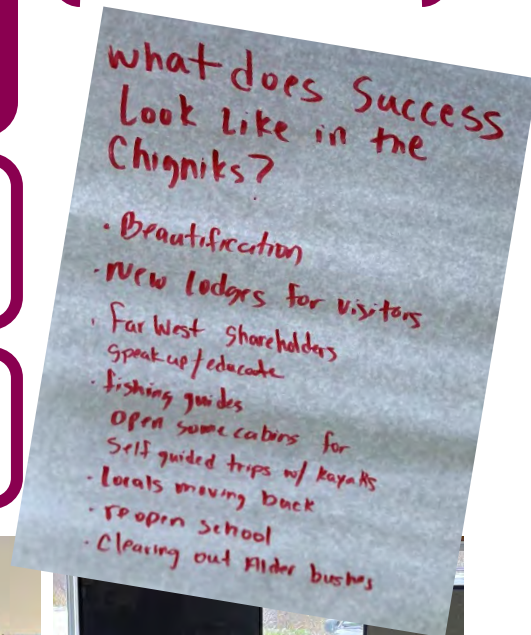 what does Success
Look Like in the
Chigniks?
· Beautification
· New lodges for visitors
· Far West Shareholders
speak up / educate
· fishing guides
open some cabins for
Self guided trips w/ kayaks
· Locals moving back
· reopen school
· Clearing out Alder bushes